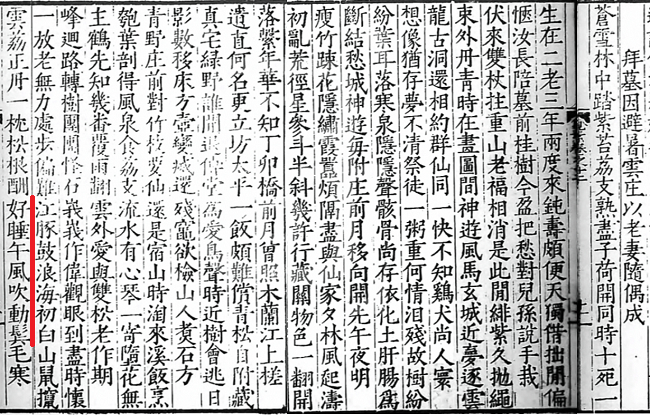 拜墓因避暑雲庄以老妻隨偶成
蒼雪林中踏紫苔荔支熟盡子荷開同時十死一
生在二老三年兩度來鈍壽頗便天獨借拙開偏
愜汝長陪墓前桂樹今盈把愁對兒孫說手栽
伏來雙杖拄重山老福相消是此閒緋紫久拋繩
束外丹青時在畫圖間神遊風馬玄城近夢逐雲
龍古洞還相約群仙同一快不知鷄犬尚人寰
想像猶存夢不清祭徒一粥重何情泪殘故樹紛
紛葉耳落寒泉隱隱聲骸骨尚存依化土肝腸爲
斷結愁城神遊每附庄前月移向開先午夜明
瘦竹踈花隱繡霞置煩隔盡與仙家夕林風起濤
初亂荒徑星參斗半斜幾許行藏關物色一翻開
落繫年華不知丁卯橋前月曾照木蘭江上槎
遺直何名更立坊太平一飯頗難償青松自附藏
真宅綠野誰開退傳堂爲愛鳥聲時近樹會逃日
影數移床方壺殘竈欲檢山人煑石方
青野庄前對竹枝要仙還是宿山時淘來溪飯烹
匏葉剖得風泉食荔支流水有心琴一寄隨花無
主鶴先知幾番覆雨翻雲外愛與雙松老作期
峰迴路轉樹團團怪石義義作偉觀眼到盡時懷
一放老無力處步偏難江豚鼓浪海初白山鼠攛
雲荔正丹一枕松根酣好睡午風吹動鬂毛寒